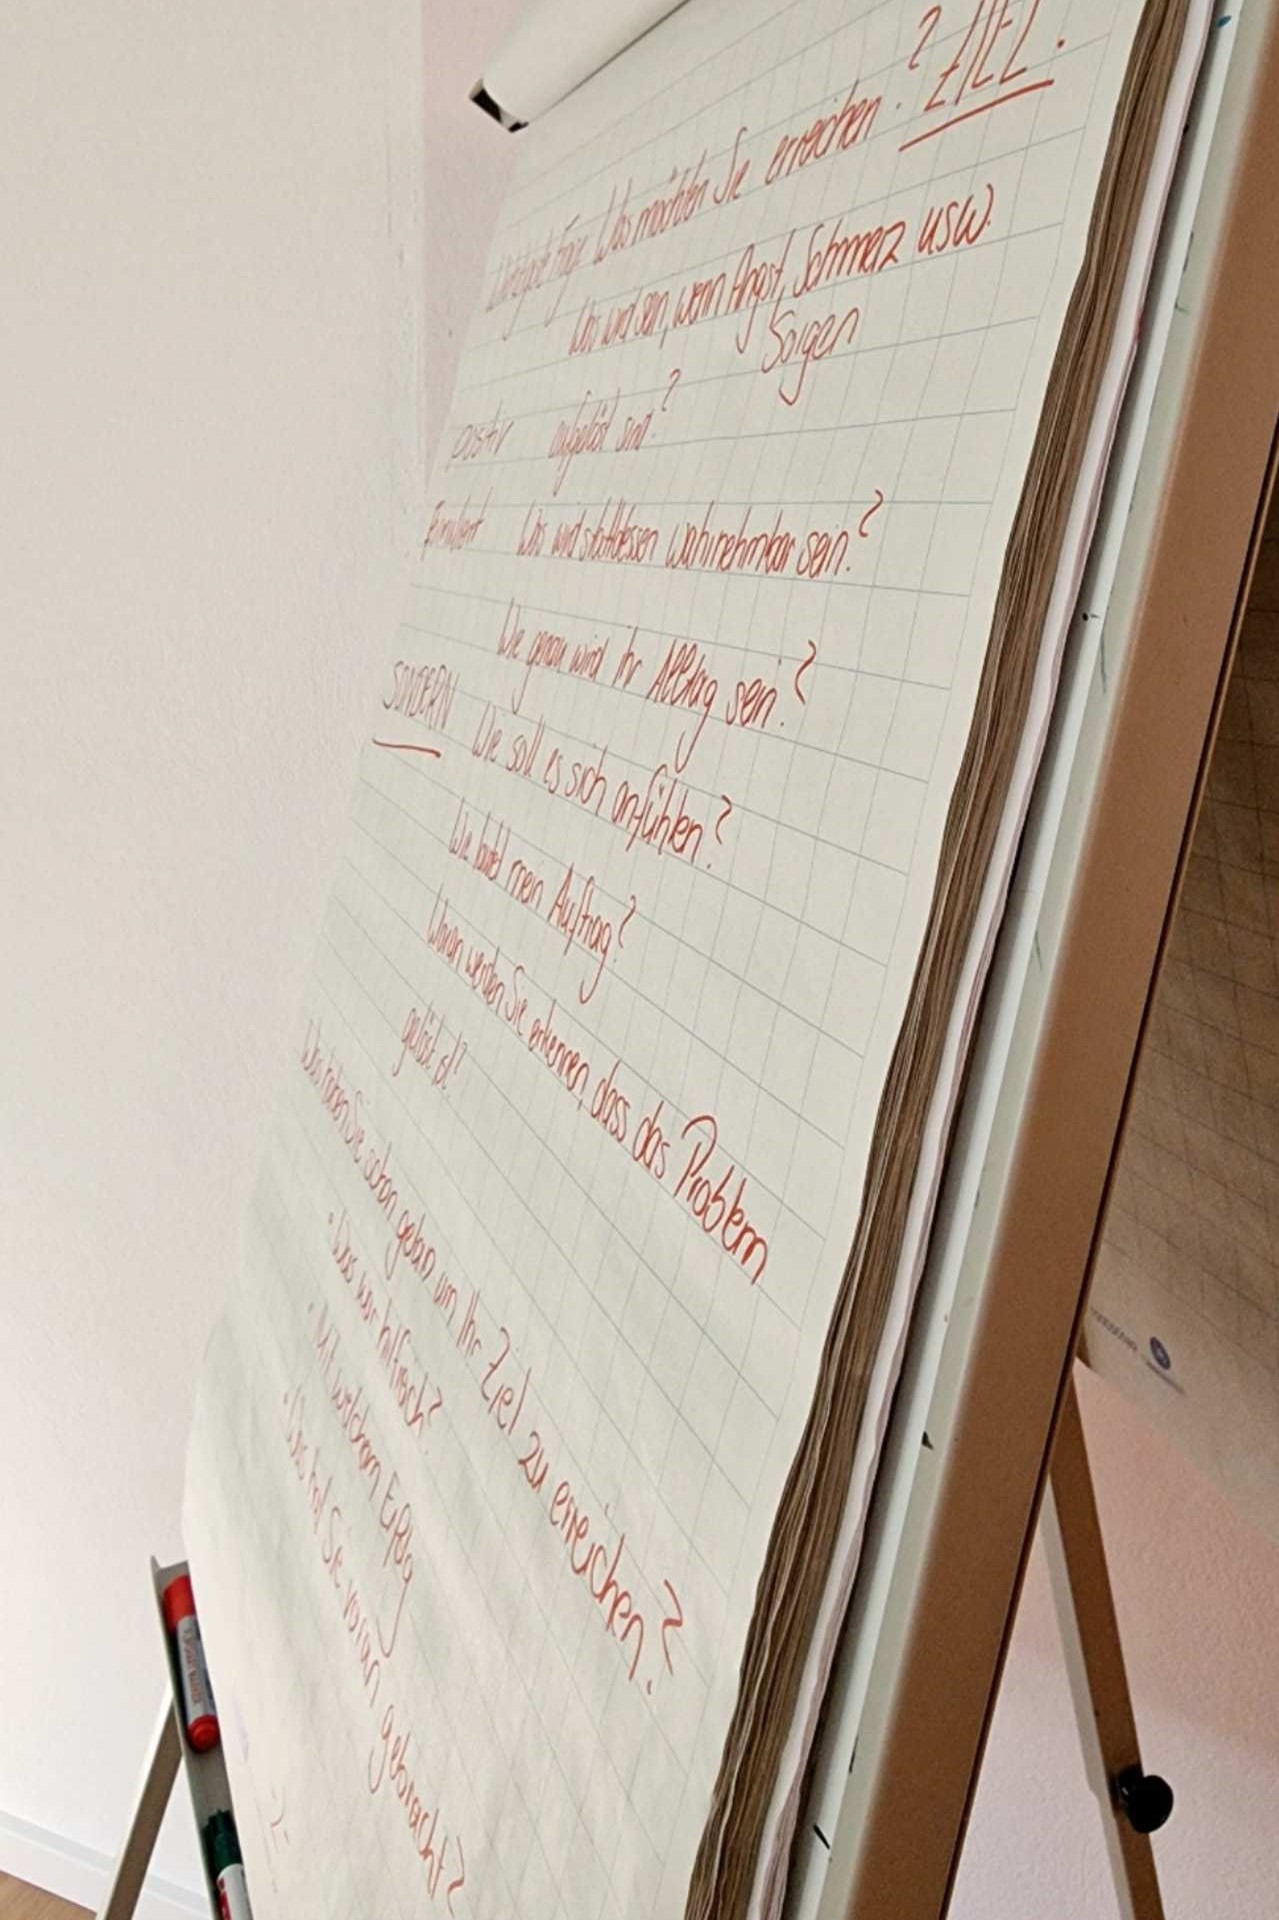 ZIEL.
Was möchten Sie erreichen?
Was wird sein, wenn Angst, Schmerz usw.
Sorgen
positiv aufgelöst sind?
formuliert Was wird stattdessen wahrnehmbar sein?
Wie genau wird Ihr Alltag sein?
SONDERN Wie soll es sich anfühlen?
Wie lautet mein Auftrag?
Woran werden Sie erkennen, dass das Problem
gelöst ist?
Was haben Sie schon getan um Ihr Ziel zu erreichen?
• Was war hilfreich?
• Mit welchem Erfolg
• Was hat Sie voran gebracht?